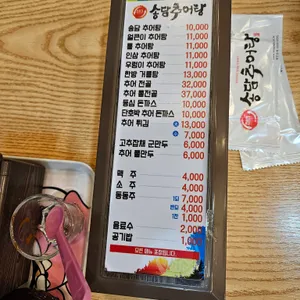 송담추어탕
송담 추어탕 10,000
얼큰이 추어탕 10,000
통 추어탕 11,000
인삼 추어탕 11,000
우렁이 추어탕 11,000
한방 거릉탕 13,000
추어 전골 32,000
추어 통전골 37,000
등심 돈까스 10,000
단호박 추어 돈까스 10,000
추어 튀김 13,000
7,000
고추잡채 군만두 6,000
추어 통만두 6,000
맥 주 4,000
소 주 4,000
동동주 7,000
4,000
1잔 1,000
음료수 2,000
공기밥 1,000
송담추어탕